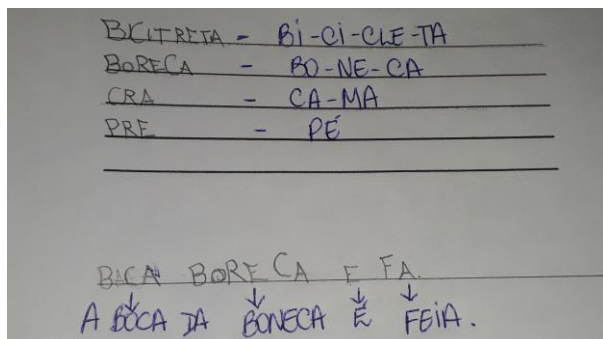 BCITRETA - BI-CI-CLE-TA
BORECA - BO-NE-CA
CRA - CA-MA
PRE - PÉ
BACA BORECA E FA.
A BOCA DA BONECA É FEIA.